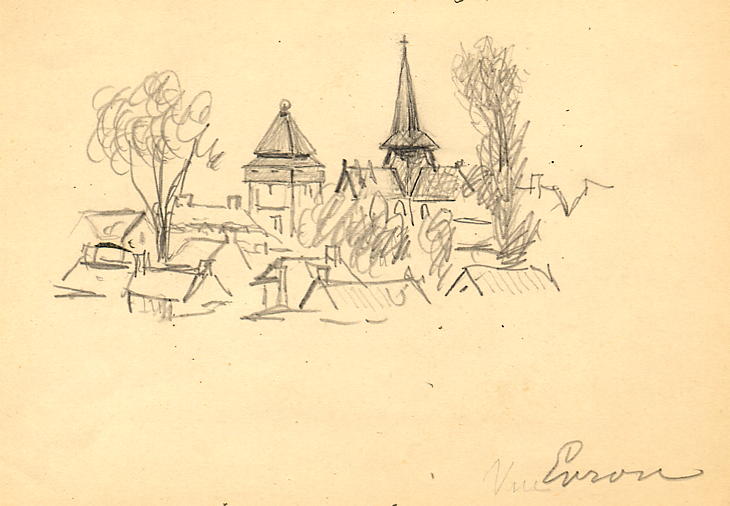 Vue Evron